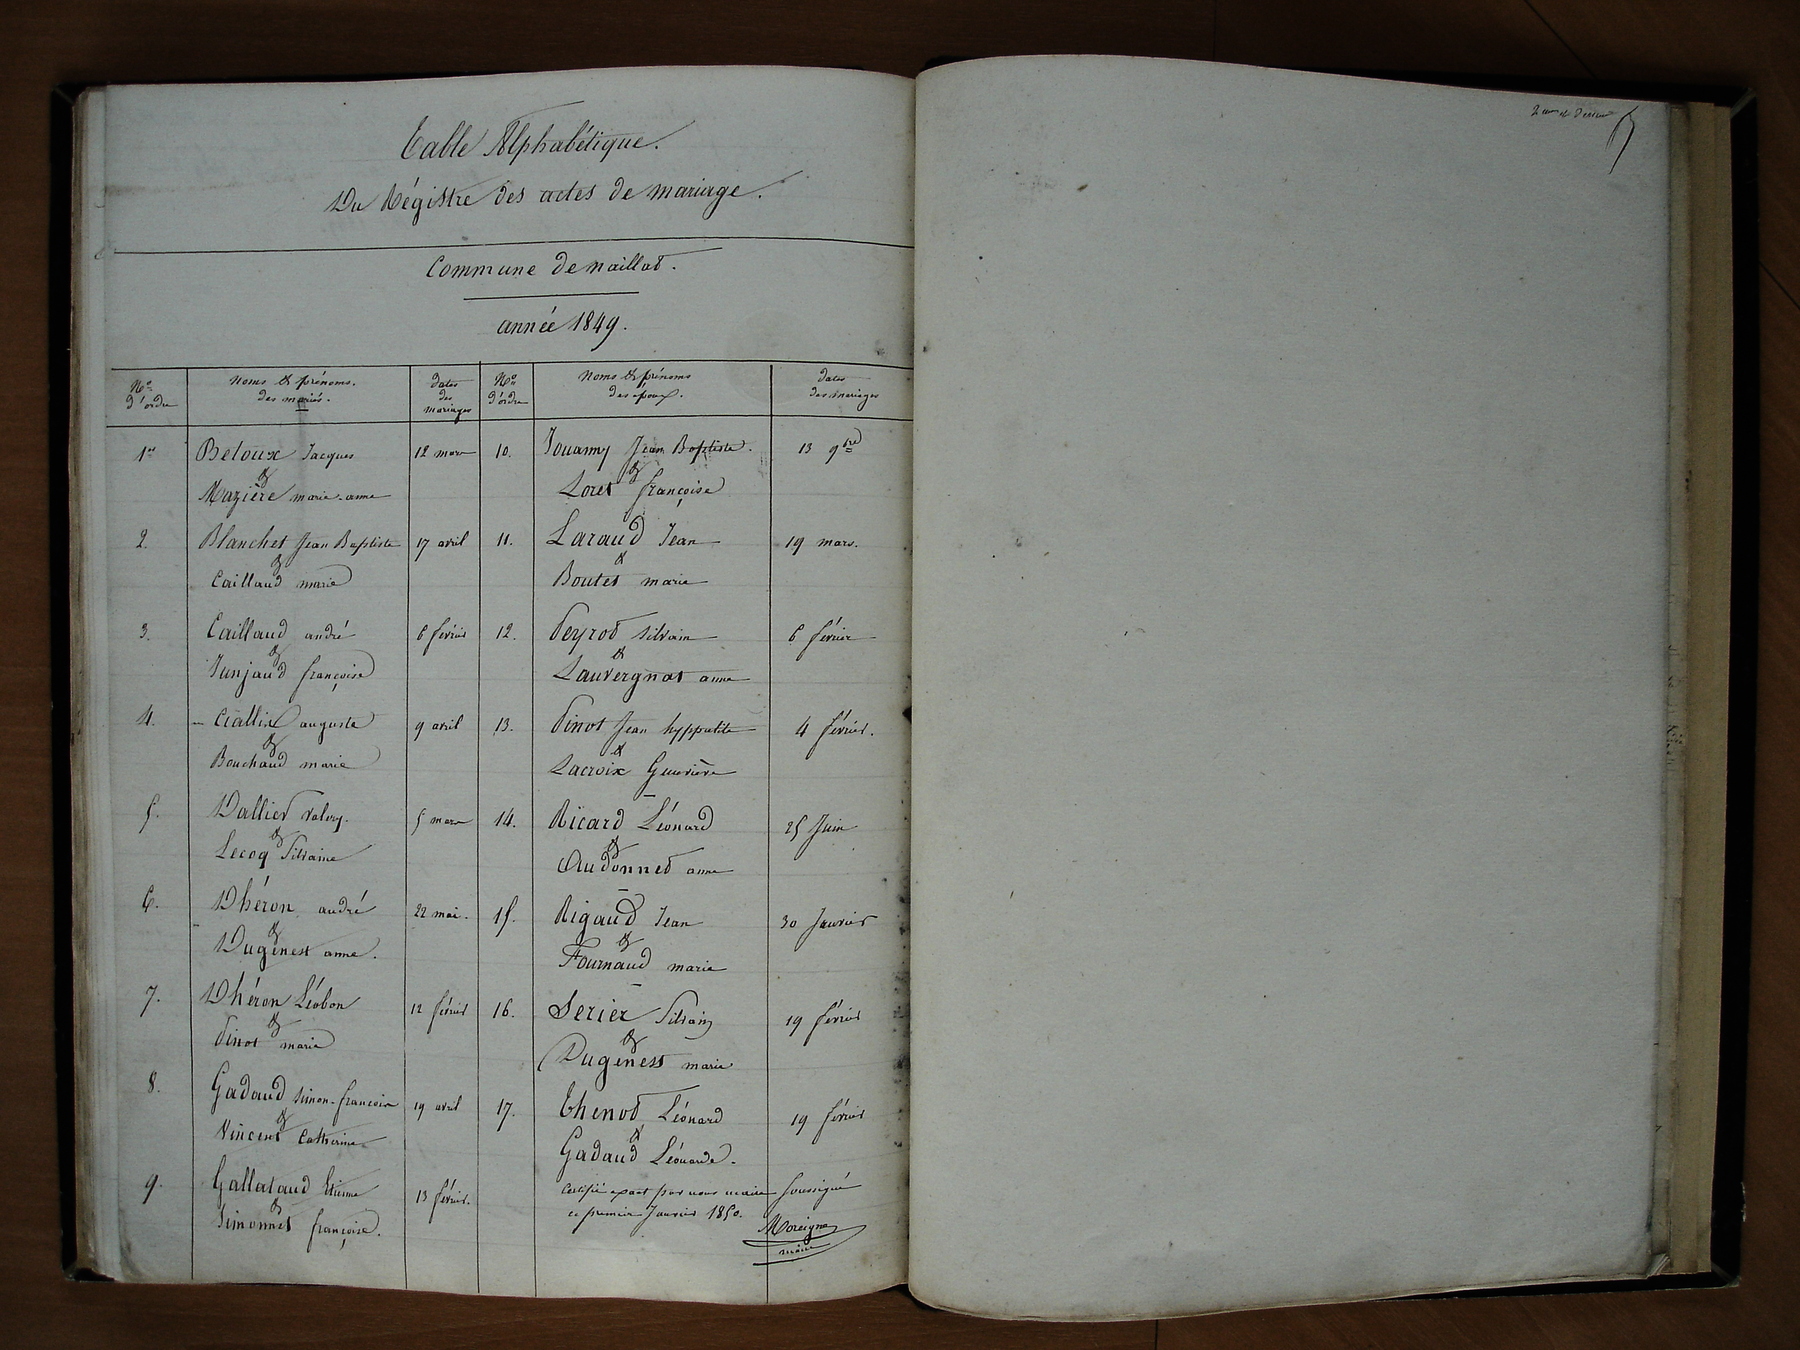 Table Alphabétique.
Du Régistre des actes de mariage.
Commune de naillat.
année 1849.
Nos d'ordre
noms & prénoms. des mariés.
dates des mariages
Nos d'ordre
noms & prénoms des époux.
dates des mariages
1er Betoux Jacques 12 mars
&
Mazière marie-anne
2. Blanchet Jean Baptiste 17 avril
&
Caillaud marie
3. Caillaud andré 6 février
&
Junjaud françoise
4. Ciallix auguste 9 avril
&
Bouchaud marie
5. Dallier Valery. 5 mars
&
Lecoq Silvaine
6. Dhéron andré 22 mai.
&
Dugenest anne.
7. Dhéron Léobon 12 février
&
Pinot marie
8. Gadaud simon-françois 19 avril
&
Vincent Catherine
9. Gallataud Etienne 13 février.
&
Simonnet françoise.
10. Jouanny Jean Baptiste. 13 9bre
&
Loret françoise
11. Laraud Jean 19 mars.
&
Boutet marie
12. Peyrot silvain 6 février
&
Lauvergnat anne
13. Pinot Jean hyppolite 4 février.
&
Lacroix Geneviève
14. Ricard Léonard 25 Juin
&
Audonnet anne
15. Rigaud Jean 30 Janvier
&
Fournaud marie
16. Serier Silvain 19 février
&
Dugenest marie
17. Thenot Léonard 19 février
&
Gadaud Léonarde.
Certifié exact par nous maire soussigné
ce premier Janvier 1850.
Moreigne
maire